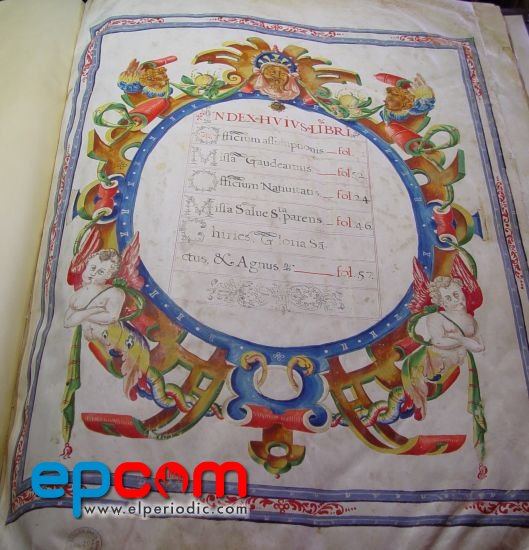 INDEX·HVIVS·LIBRI
Officium assumptionis fol.
Missa Gaudeamus fol. 52.
Officium Natiuitatis fol. 24.
Missa Salue Sta parens fol. 46.
Khiries, Gloria Sā
ctus, & Agnus 2: fol. 57.
epcom
www.elperiodic.com